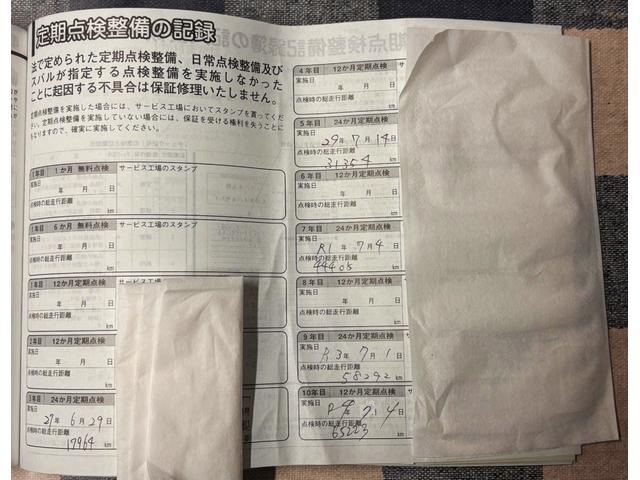 定期点検整備の記録
法で定められた定期点検整備、日常点検整備及び
スバルが指定する点検整備を実施しなかった
ことに起因する不具合は保証修理いたしません。
定期点検整備を実施した場合には、サービス工場においてスタンプを貰ってくだ
さい。定期点検整備を実施していない場合には、保証を受ける権利を失うことに
もなりますので、確実に実施してください。
1年目 1か月 無料点検 サービス工場のスタンプ
実施日
年 月 日
点検時の総走行距離
km
1年目 6か月 無料点検 サービス工場のスタンプ
実施日
年 月 日
点検時の総走行距離
km
1年目 12か月定期点検 サービス工場
実施日
年 月 日
点検時の総走行距離
km
2年目 12か月定期点検
実施日
年 月 日
点検時の総走行距離
km
3年目 24か月定期点検
実施日
27年 6月 29日
点検時の総走行距離
17964 km
4年目 12か月定期点検
実施日
年 月 日
点検時の総走行距離
km
5年目 24か月定期点検
実施日
29年 7月 14日
点検時の総走行距離
31354 km
6年目 12か月定期点検
実施日
年 月 日
点検時の総走行距離
km
7年目 24か月定期点検
実施日
R1年 7月 4日
点検時の総走行距離
44405 km
8年目 12か月定期点検
実施日
年 月 日
点検時の総走行距離
km
9年目 24か月定期点検
実施日
R3年 7月 1日
点検時の総走行距離
58292 km
10年目 12か月定期点検
実施日
R4年 7月 4日
点検時の総走行距離
65223 km